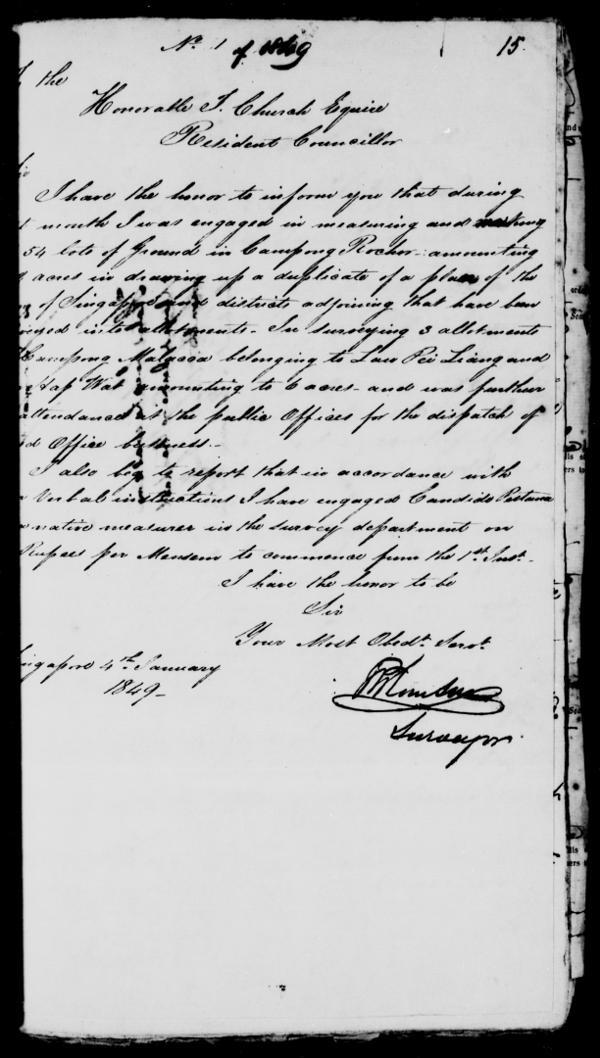 No. 1 of 1849
15.
the
Honorable T. Church Equire
Resident Councillor
I have the honor to inform you that during
month I was engaged in measuring and marking
54 lots of Ground in Campong Rochor - amounting
acres in drawing up a duplicate of a plan of the
of Singapore and districts adjoining that have been
into allotments - In surveying 3 allotments
Campong Malacca belonging to Lau Pei Liang and
Hap Wat amounting to 6 acres - and was further
attendance at the public Offices for the dispatch of
Office business. -
I also beg to report that in accordance with
Verbal instructions I have engaged Candido Pestana
native measurer in the survey department on
Rupees per Mensem to commence from the 1st. Inst. -
I have the honor to be
Sir
Your Most Obedt. Servt.
ingapore 4th. January
1849 -
Surveyor.